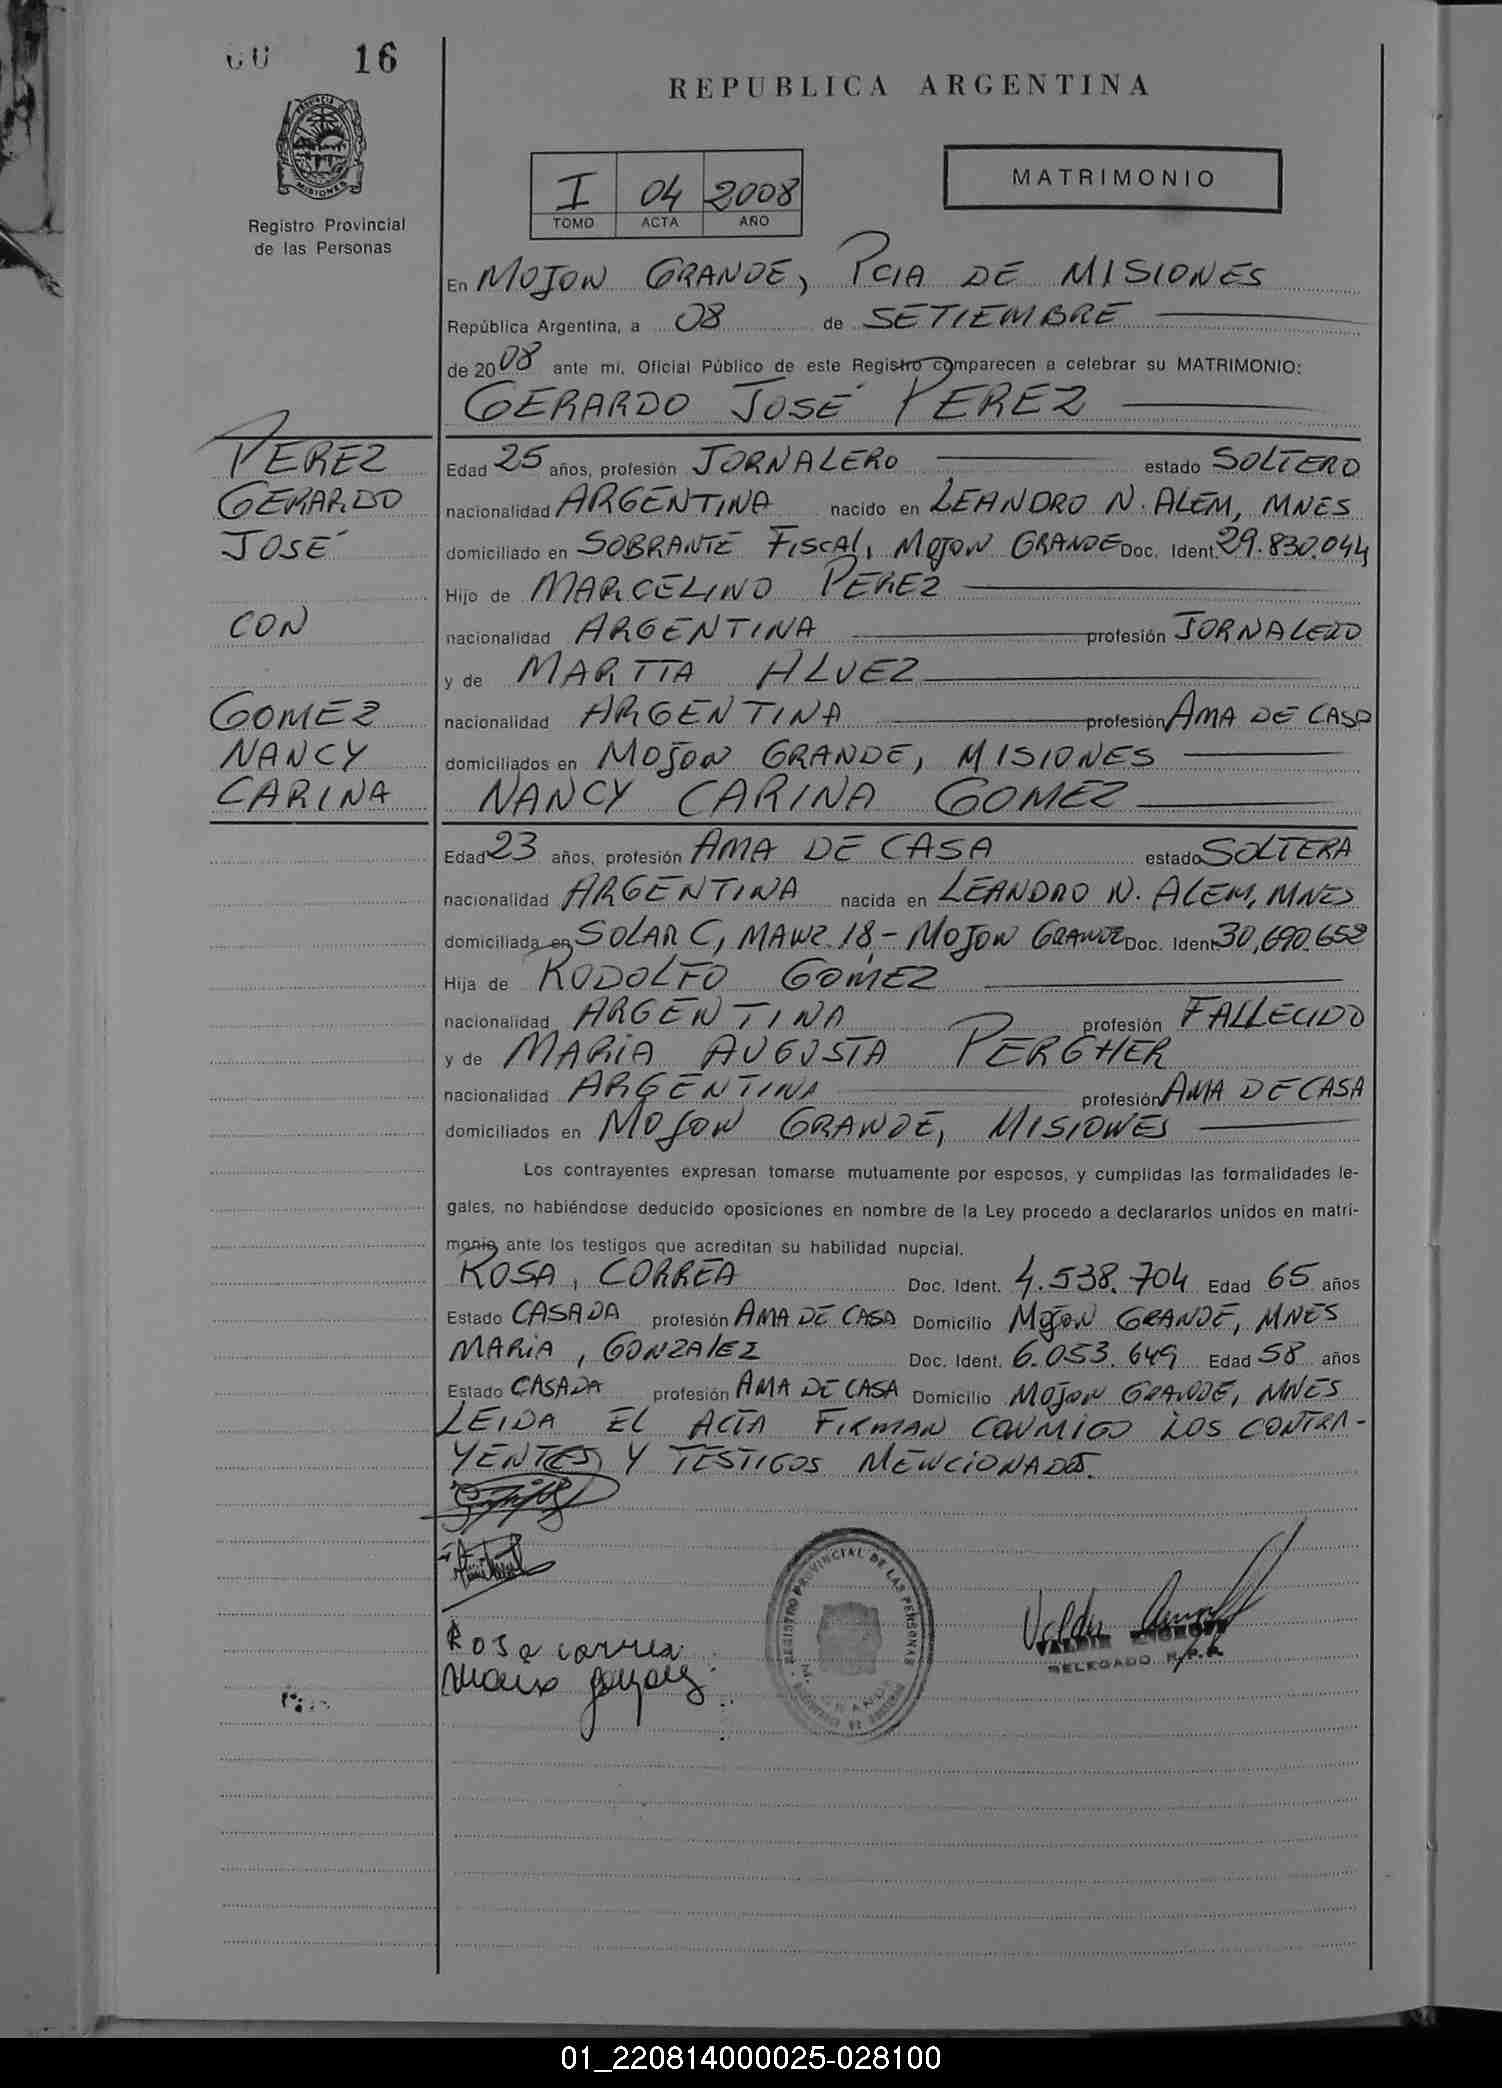 16
REPUBLICA ARGENTINA
MISIONES
Registro Provincial
de las Personas
I 04 2008
TOMO ACTA AÑO
MATRIMONIO
En MOJON GRANDE, PCIA DE MISIONES
República Argentina, a 08 de SETIEMBRE
de 2008 ante mi, Oficial Público de este Registro comparecen a celebrar su MATRIMONIO:
GERARDO JOSÉ PEREZ
PEREZ
GERARDO
JOSÉ
CON
GOMEZ
NANCY
CARINA
Edad 25 años, profesión JORNALERO estado SOLTERO
nacionalidad ARGENTINA nacido en LEANDRO N. ALEM, MNES
domiciliado en SOBRANTE FISCAL, MOJON GRANDE Doc. Ident. 29.830.044
Hijo de MARCELINO PEREZ
nacionalidad ARGENTINA profesión JORNALERO
y de MARTTA ALVEZ
nacionalidad ARGENTINA profesión AMA DE CASA
domiciliados en MOJON GRANDE, MISIONES
NANCY CARINA GOMEZ
Edad 23 años, profesión AMA DE CASA estado SOLTERA
nacionalidad ARGENTINA nacida en LEANDRO N. ALEM, MNES
domiciliada en SOLAR C, MANZ. 18 - MOJON GRANDE Doc. Ident. 30,690.652
Hija de RODOLFO GOMEZ
nacionalidad ARGENTINA profesión FALLECIDO
y de MARIA AUGUSTA PERGHER
nacionalidad ARGENTINA profesión AMA DE CASA
domiciliados en MOJON GRANDE, MISIONES
Los contrayentes expresan tomarse mutuamente por esposos, y cumplidas las formalidades le-
gales, no habiéndose deducido oposiciones en nombre de la Ley procedo a declararlos unidos en matri-
monio ante los testigos que acreditan su habilidad nupcial.
ROSA, CORREA Doc. Ident. 4.538.704 Edad 65 años
Estado CASADA profesión AMA DE CASA Domicilio MOJON GRANDE, MNES
MARIA, GONZALEZ Doc. Ident. 6.053.649 Edad 58 años
Estado CASADA profesión AMA DE CASA Domicilio MOJON GRANDE, MNES
LEIDA EL ACTA FIRMAN CONMIGO LOS CONTRA-
YENTES Y TESTIGOS MENCIONADOS.
REGISTRO PROVINCIAL DE LAS PERSONAS
Rosa correa
Maria gonzalez
VALDIR
DELEGADO R.P.P.
01_220814000025-028100